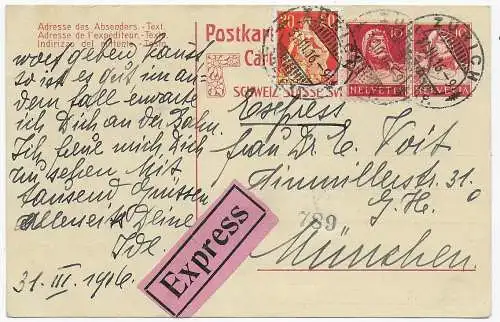 Adresse des Absenders. - Text.
Adresse de l'expéditeur. - Texte.
Indirizzo del mittente. - Testo.
geben kannst
so ist es gut, im an-
dern fall erwarte
ich Dich an der Bahn.
Ich freue mich Dich
zu sehen. Mit
tausend Grüssen
allerseits Deine
Ide
31. III. 1916
Postkar
Cart
SCHWEIZ SUISSE SV
ZÜRICH
HELVETIA
10
HELVETIA
10
Express
Frau Dr. C. Voit
31.
G. H.
789
München
Express